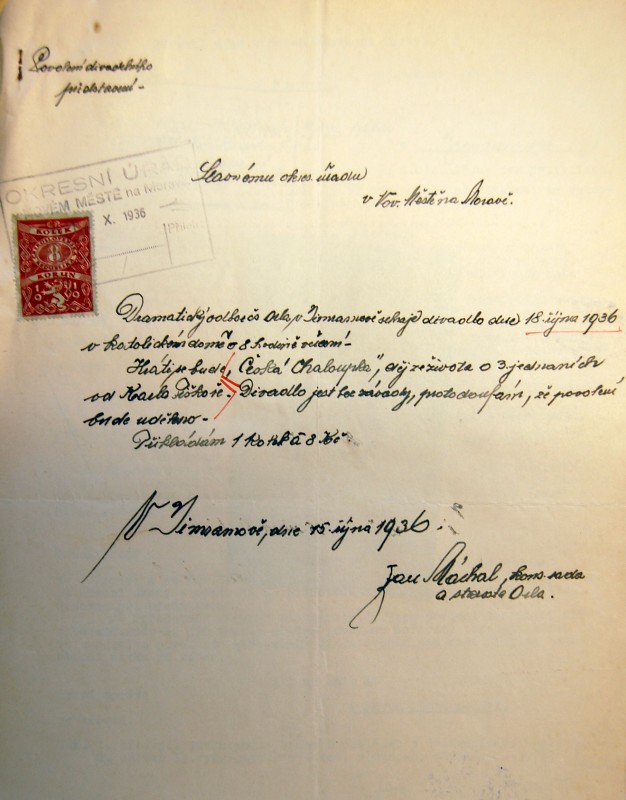 Povolení divadelního
představení -
Slavnému okres. úřadu
v Nov. Městě na Moravě.
OKRESNÍ ÚŘAD
NOVÉM MĚSTĚ na Moravě
X. 1936
Příloh
Č.S.
KOLEK
8
KORUN
Dramatický odbor čs Orla, v Jimramově sehraje divadlo dne 18. října 1936
v katolickém domě o 8 hodině večerní -
Hráti se bude, "Česká Chaloupka", děj ze života o 3. jednáních
od Karla - Divadlo jest bez závady, protodoufám, že povolení
bude uděleno -
Přikládám 1 kolek á 8 Kč.
V Jimramově, dne 15 října 1936.
Jan Máchal, kons. rada
a starosta Orla.